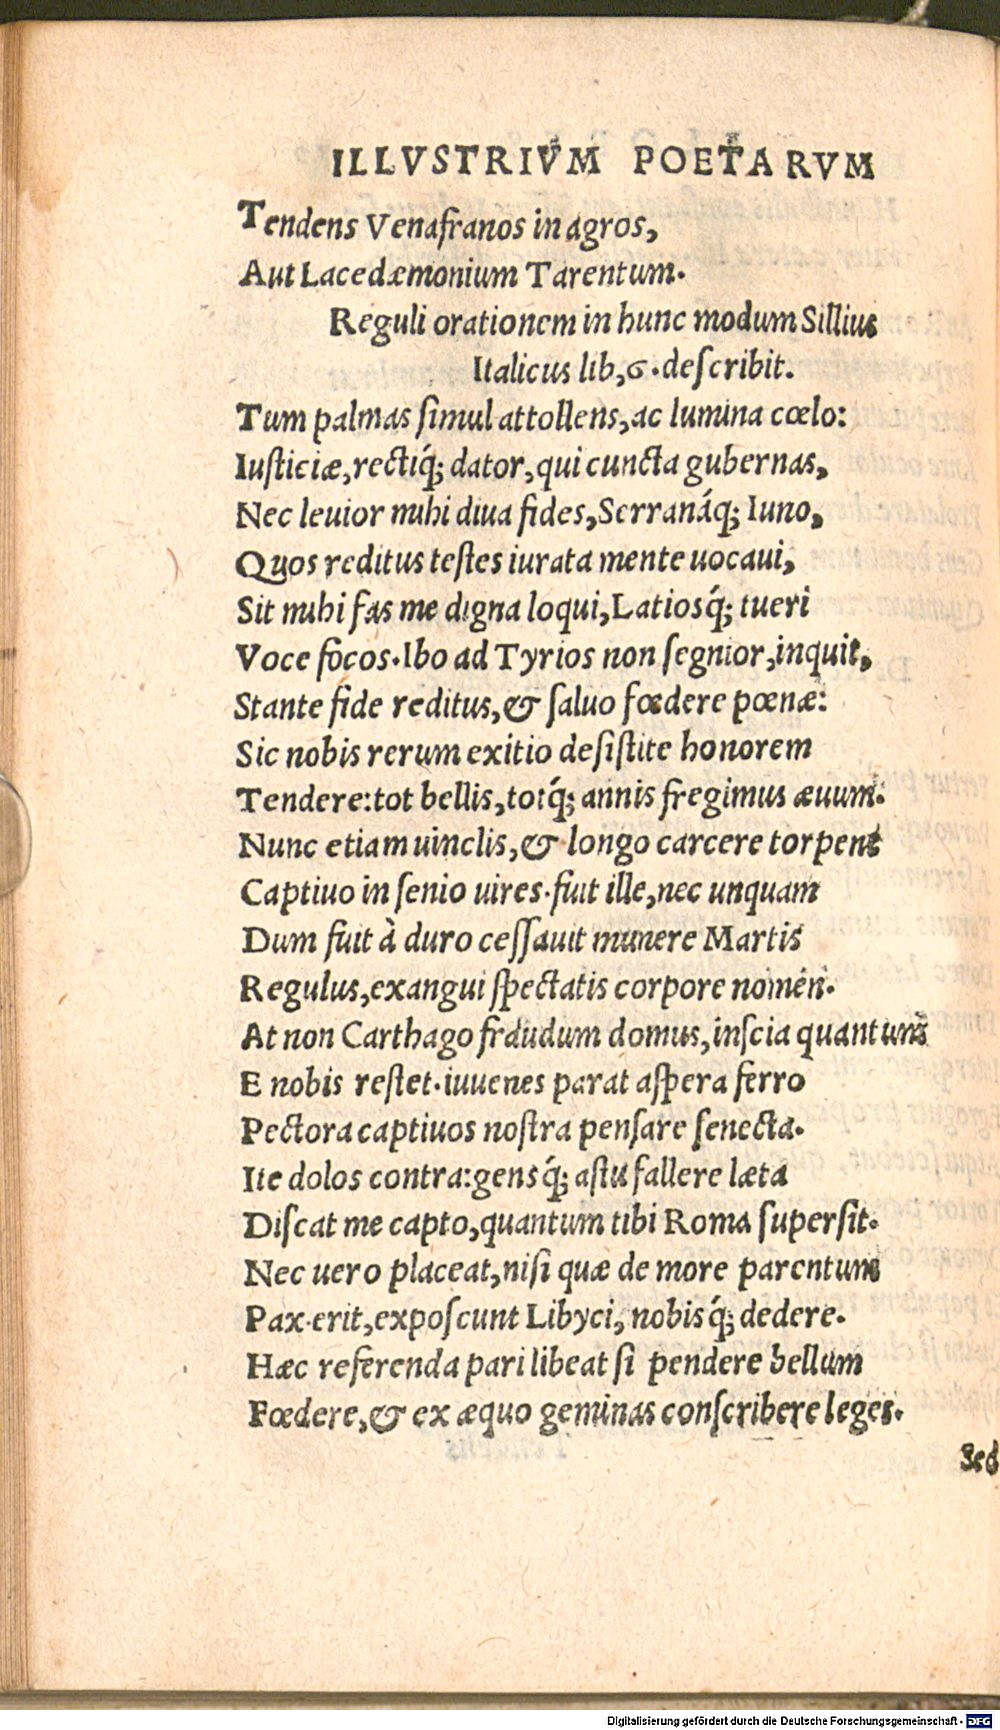 ILLVSTRIVM POETARVM
Tendens Venafranos in agros,
Aut Lacedæmonium Tarentum.
Reguli orationem in hunc modum Sillius
Italicus lib,6.describit.
Tum palmas ſimul attollens,ac lumina cœlo:
Iuſticiæ,rectiq́; dator,qui cuncta gubernas,
Nec leuior mihi diua fides,Serranáq; Iuno,
Quos reditus teſtes iurata mente uocaui,
Sit mihi fas me digna loqui,Latiosq́; tueri
Voce focos.Ibo ad Tyrios non ſegnior,inquit,
Stante fide reditus,& ſaluo fœdere pœnæ:
Sic nobis rerum exitio deſiſtite honorem
Tendere:tot bellis,totq́; annis fregimus æuum.
Nunc etiam uinclis,& longo carcere torpent
Captiuo in ſenio uires.fuit ille,nec unquam
Dum fuit à duro ceſſauit munere Martis
Regulus,exangui ſpectatis corpore nomen.
At non Carthago fraudum domus,inſcia quantum
E nobis reſtet.iuuenes parat aſpera ferro
Pectora captiuos noſtra penſare ſenecta.
Ite dolos contra:gensq́; aſtu fallere læta
Diſcat me capto,quantum tibi Roma ſuperſit.
Nec uero placeat,niſi quæ de more parentum
Pax.erit,expoſcunt Libyci, nobisq́; dedere.
Hæc referenda pari libeat ſi pendere bellum
Fœdere,& ex æquo geminas conſcribere leges.
Sed
Digitalisierung gefördert durch die Deutsche Forschungsgemeinschaft - DFG